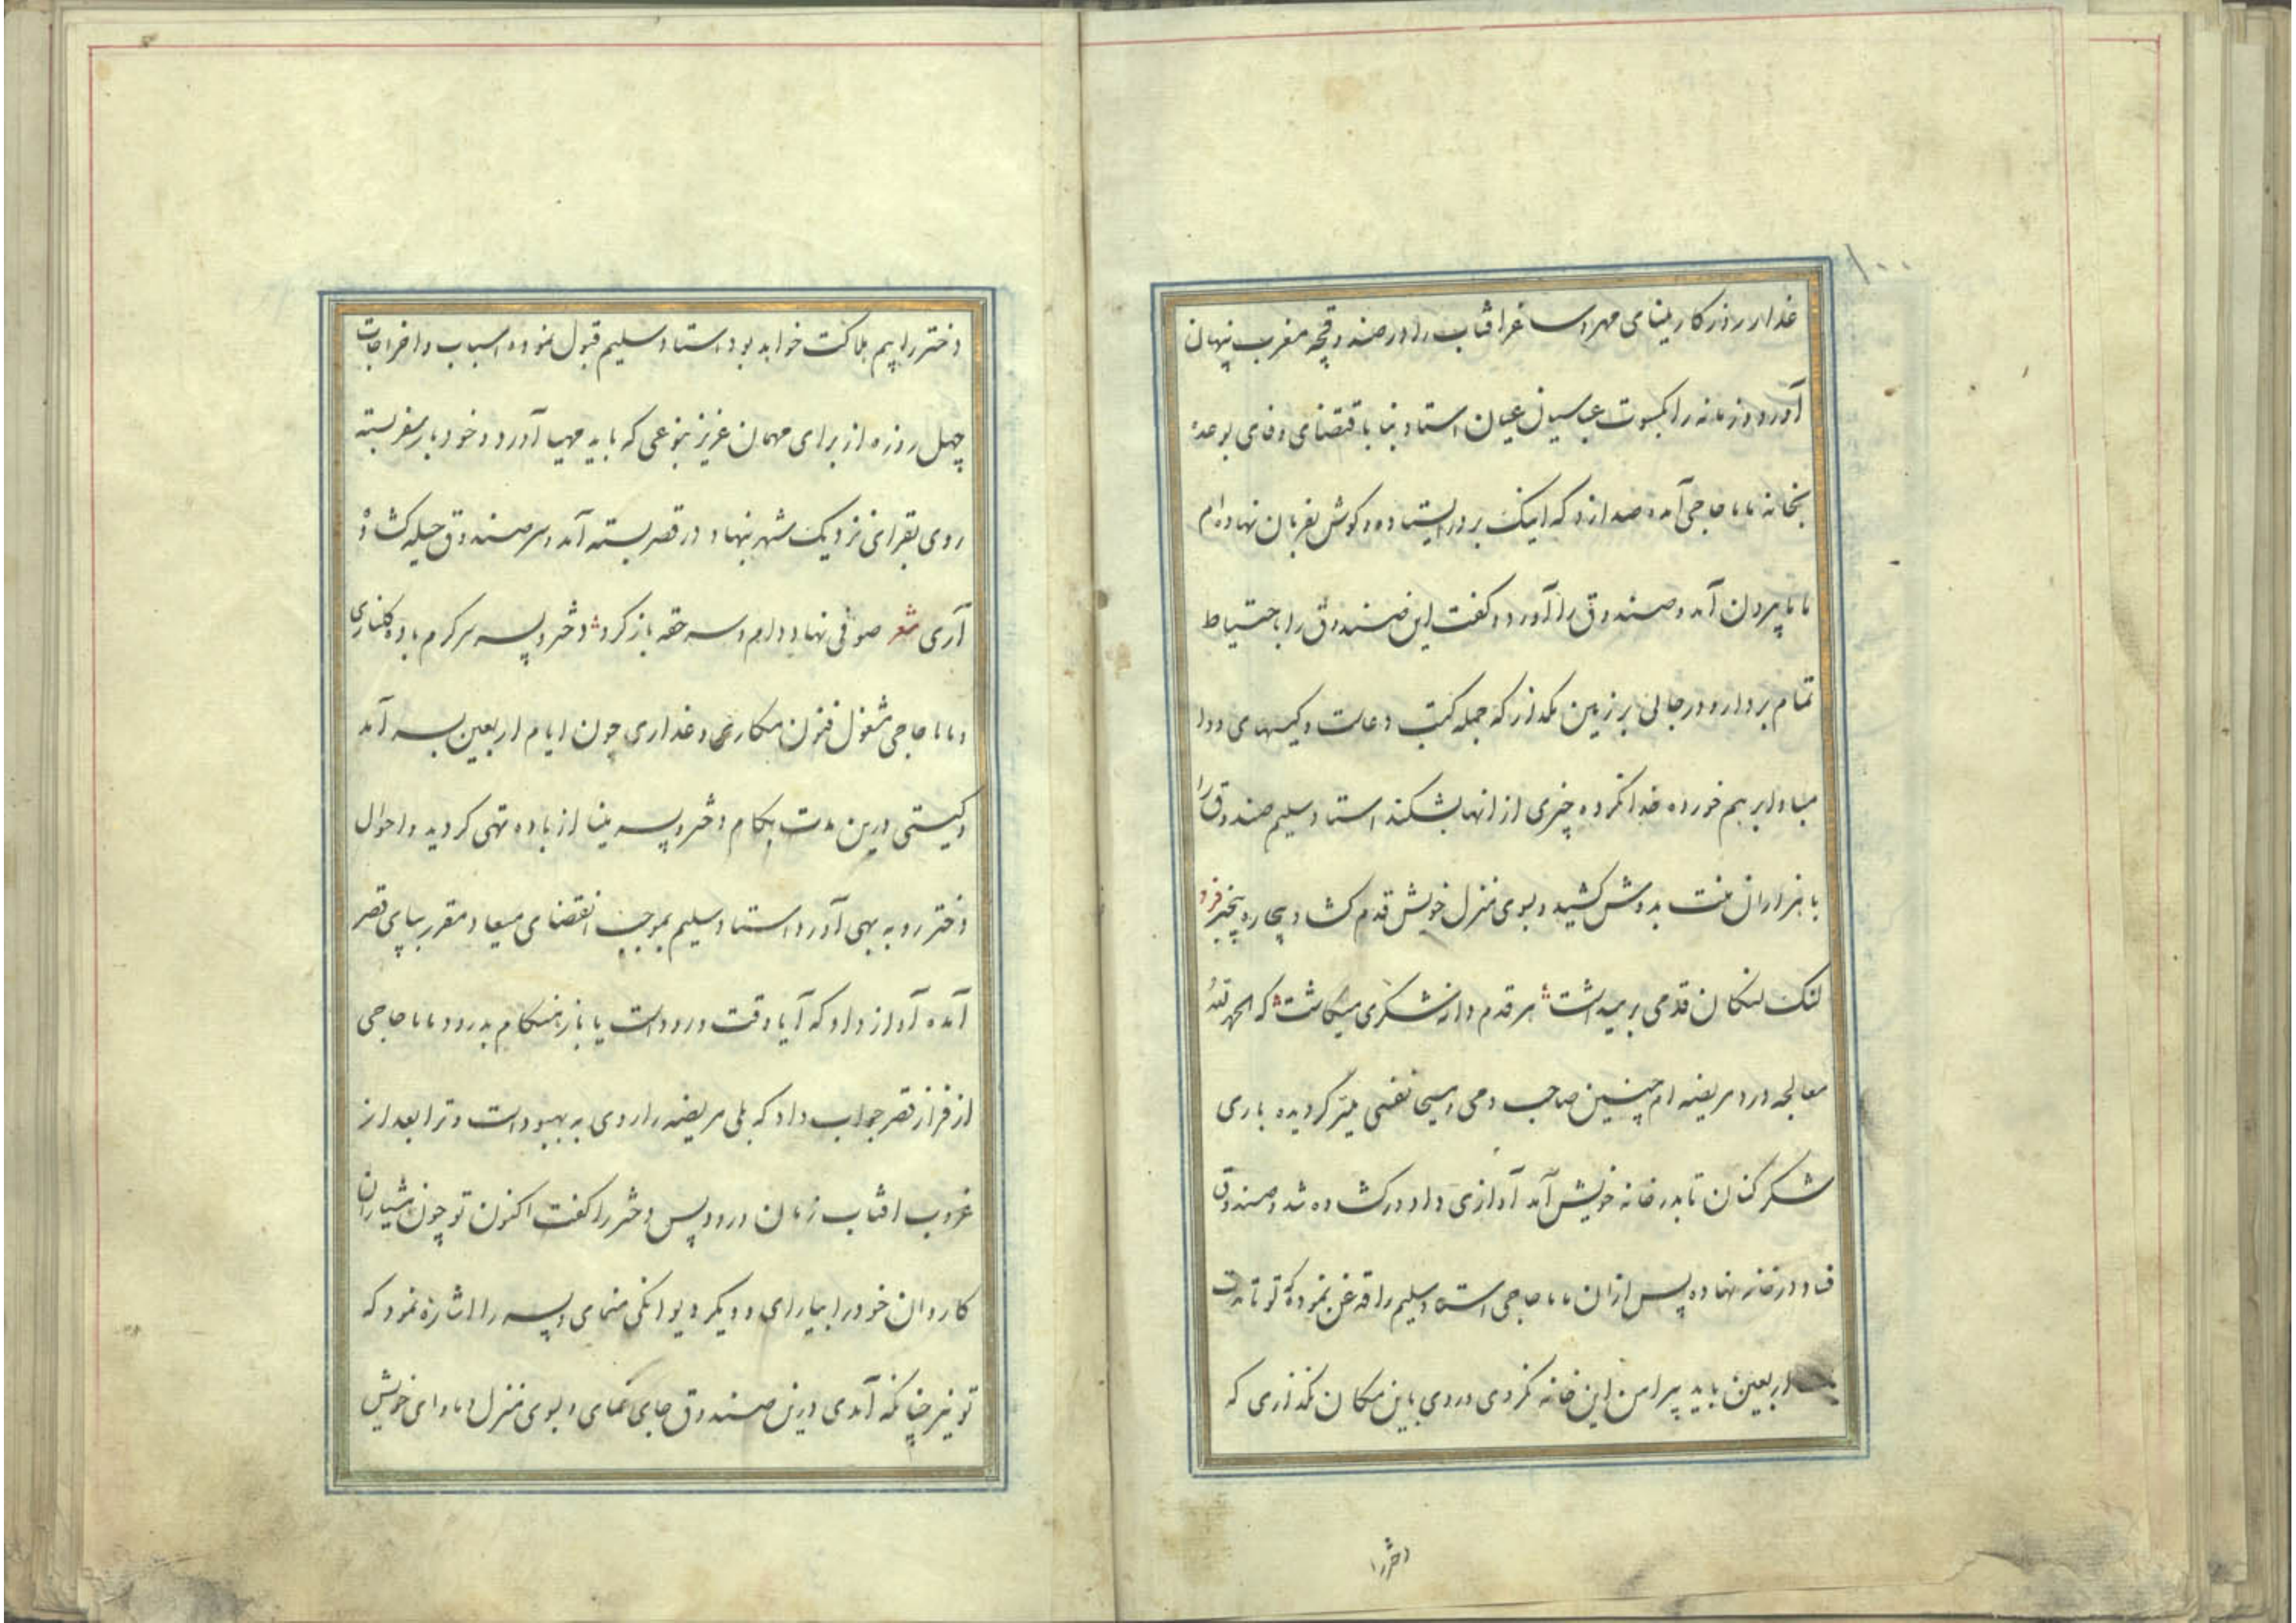 ۱۰۰
غدار روزکار مینای مهر و ساغر افتاب را در صندوقچه مغرب پنهان
آورد و زمانه را بکسوت عباسیان عیان استاد بنا باقتضای وفای بوعده
بخانه ماما حاجی آمده صدا زد که اینک بر در ایستاده و کوش بفرمان نهاده‌ام
ماما بیرون آمد و صندوق را آورد و کفت این صندوق را باحتیاط
تمام بردار و در جائی بر زمین مکذار که جمله کتب دعاست و کیسهای دوا
مبادا بر هم خورده خدا نکرده چیزی از انها بشکند استاد سلیم صندوق را
با هزاران منت بدوش کشید و بسوی منزل خویش قدم کشاد بیچاره بیخبر فرد
لنک لنکان قدمی برمیداشت هر قدم دانه شکری میکاشت که الحمد لله
معالجه درد مریضه ام چنین صاحب دمی و مسیحا نفسی میسر کردیده باری
شکر کنان تا بدر خانه خویش آمد آوازی داد در کشاده شد و صندوق
در خانه نهاده پس از ان ماما حاجی استاد سلیم را قدغن نموده که تو تا مدت
اربعین باید پیرامن این خانه نکردی و روی باین مکان نکذاری که
دختر را
دختر را بیم هلاکت خواهد بود استاد سلیم قبول نموده اسباب و اخراجات
چهل روزه از برای مهمان عزیز بنوعی که باید مهیا آورد و خود بار سفر بسته
روی بقرای نزدیک شهر نهاد و در قصر بسته آمد و سر صندوق حیله کشاد
آری شعر صوفی نهاد دام و سر حقه باز کرد دختر و پسر سرکرم باده کناری
و ماما حاجی مشغول فنون مکاری و غداری چون ایام اربعین بسر آمد
و کیستی درین مدت بکام دختر و پسر مینا از باده تهی کردید و احوال
دختر رو به بهی آورد استاد سلیم بموجب انقضای میعاد مقرر بپای قصر
آمده آواز داد که آیا وقت ورود است یا باز هنکام بدرود ماما حاجی
از فراز قصر جواب داد که بلی مریضه را روی به بهبود است و ترا بعد از
غروب افتاب زمان ورود پس دختر را کفت اکنون تو چون هشیاران
کاردان خود را بیارای و دیکر دیوانکی منمای و پسر را اشاره نمود که
تو نیز چنانکه آمدی درین صندوق جای نمای و بسوی منزل و ماوای خویش